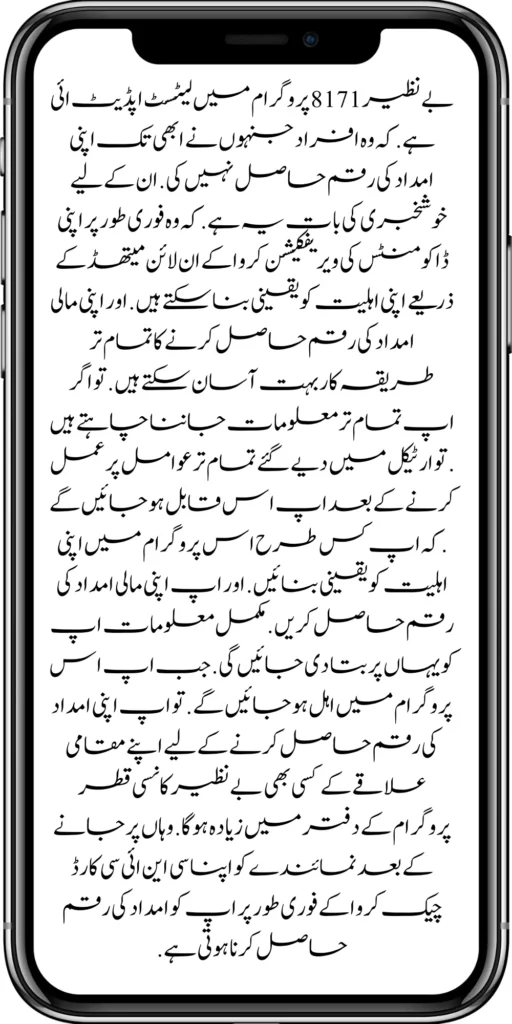 بے نظیر 8171 پروگرام میں لیٹسٹ اپڈیٹ ائی
ہے. کہ وہ افراد جنہوں نے ابھی تک اپنی
امداد کی رقم حاصل نہیں کی. ان کے لیے
خوشخبری کی بات یہ ہے. کہ وہ فوری طور پر اپنی
ڈاکومنٹس کی ویریفکیشن کروا کے ان لائن میتھڈ کے
ذریعے اپنی اہلیت کو یقینی بنا سکتے ہیں. اور اپنی مالی
امداد کی رقم حاصل کرنے کا تمام تر
طریقہ کار بہت آسان سکتے ہیں. تو اگر
اپ تمام تر معلومات جاننا چاہتے ہیں
. تو ارٹیکل میں دیے گئے تمام تر عوامل پر عمل
کرنے کے بعد اپ اس قابل ہو جائیں گے
. کہ اپ کس طرح اس پروگرام میں اپنی
اہلیت کو یقینی بنائیں. اور اپ اپنی مالی امداد کی
رقم حاصل کریں. مکمل معلومات اپ
کو یہاں پر بتا دی جائیں گی. جب اپ اس
پروگرام میں اہل ہو جائیں گے. تو اپ اپنی امداد
کی رقم حاصل کرنے کے لیے اپنے مقامی
علاقے کے کسی بھی بے نظیر کانسی قطر
پروگرام کے دفتر میں زیادہ ہوگا. وہاں پر جانے
کے بعد نمائندے کو اپنا سی این ائی سی کارڈ
چیک کروا کے فوری طور پر اپ کو امداد کی رقم
حاصل کرنا ہوتی ہے.